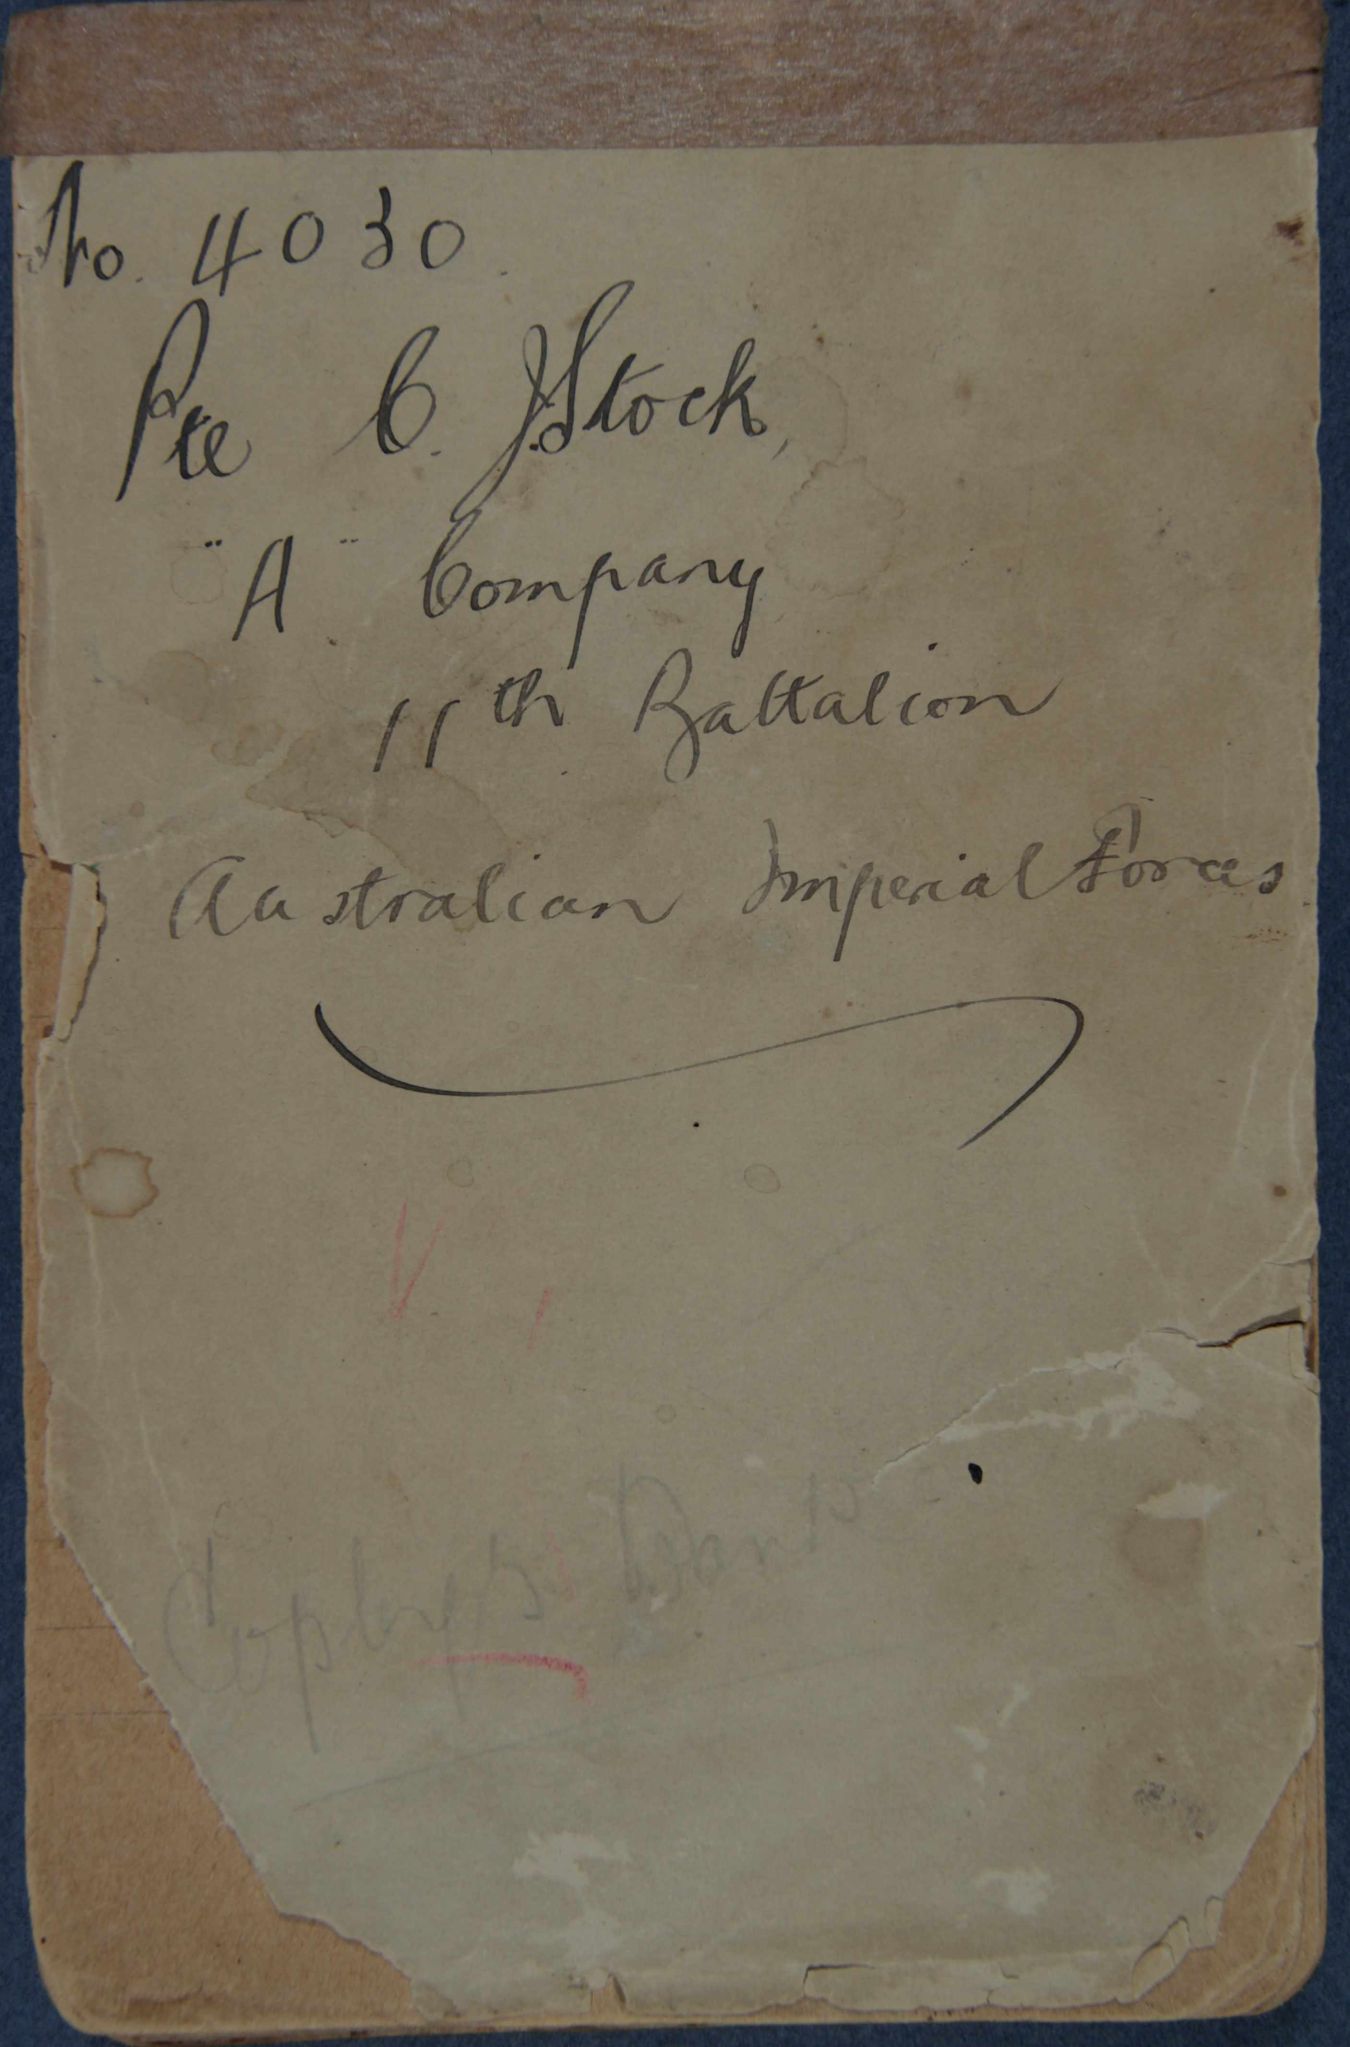 No. 4030.
Pte C. J. Stock,
"A" Company
11th Battalion
Australian Imperial Forces